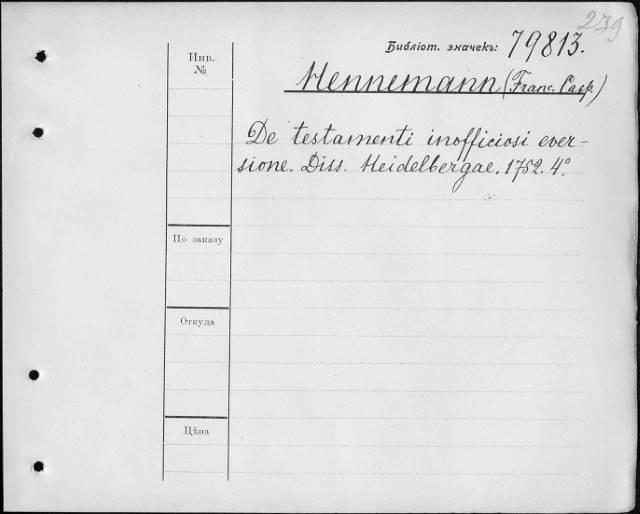 279
Библіот. значекъ: 79813.
Инв.
№
Hennemann (Franc. Casp.)
De testamenti inofficiosi ever-
sione. Diss. Heidelbergae. 1752. 4°.
По заказу
Откуда
Цѣна